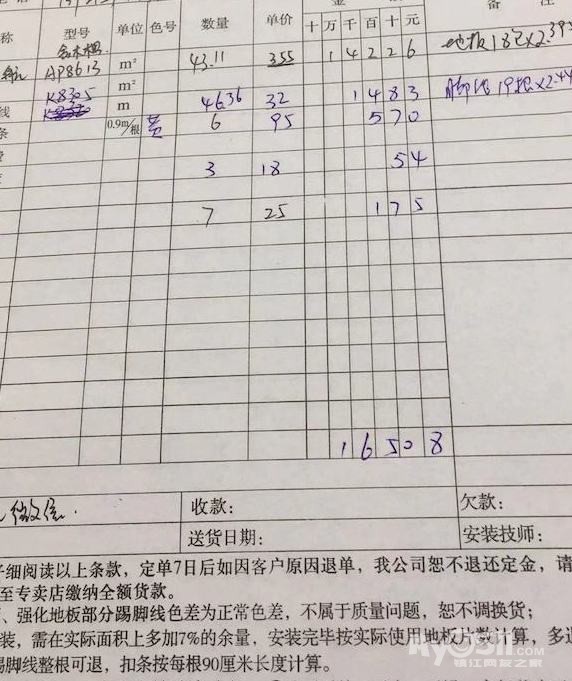 备 注
称 型号 单位 色号 数量 单价 十 万 千 百 十 元
AP8613 m² 43.11 355 1 4 2 2 6 地板18包×2.395
m²
线 K8305 m 46.36 32 1 4 8 3 脚线19根×2.44
条 0.9m/根 黄 6 95 5 7 0
费 3 18 5 4
7 25 1 7 5
1 6 5 0 8
微信. 收款: 欠款:
送货日期: 安装技师:
仔细阅读以上条款，定单7日后如因客户原因退单，我公司恕不退还定金，请
至专卖店缴纳全额货款。
、强化地板部分踢脚线色差为正常色差，不属于质量问题，恕不调换货；
装，需在实际面积上多加7%的余量，安装完毕按实际使用地板片数计算，多
踢脚线整根可退，扣条按每根90厘米长度计算。
镇江网友之家